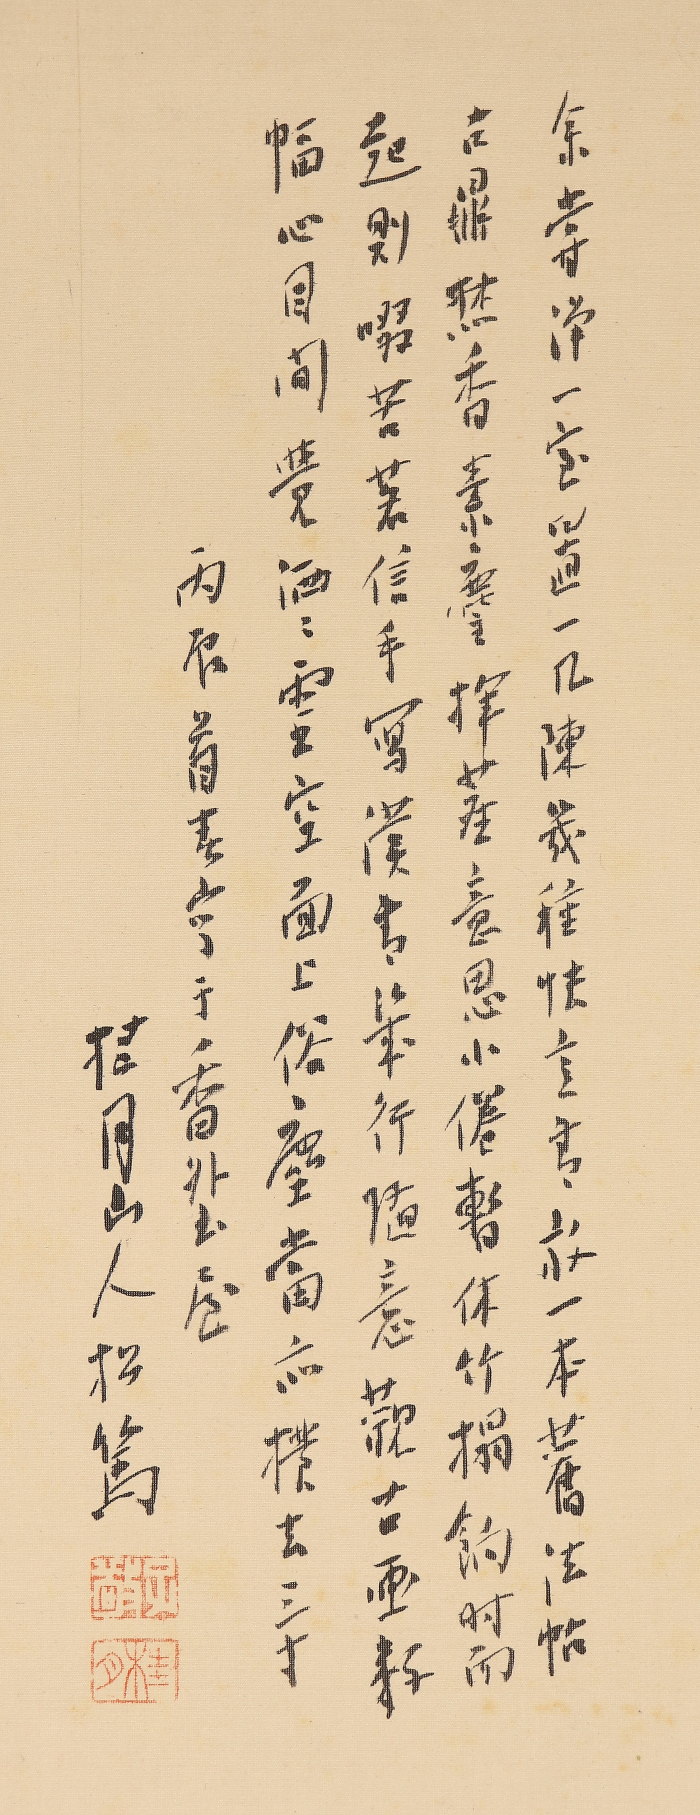 余嘗淨一室置一几陳幾種快意書放一本舊法帖
古鼎焚香素麈揮塵意思小倦暫休竹榻餉時而
起則啜苦茗信手寫漢書幾行隨意觀古画數
幅心目間覺洒〻靈空面上俗塵當亦撲去三寸
丙辰首春寫于香外書屋
桂月山人松篤